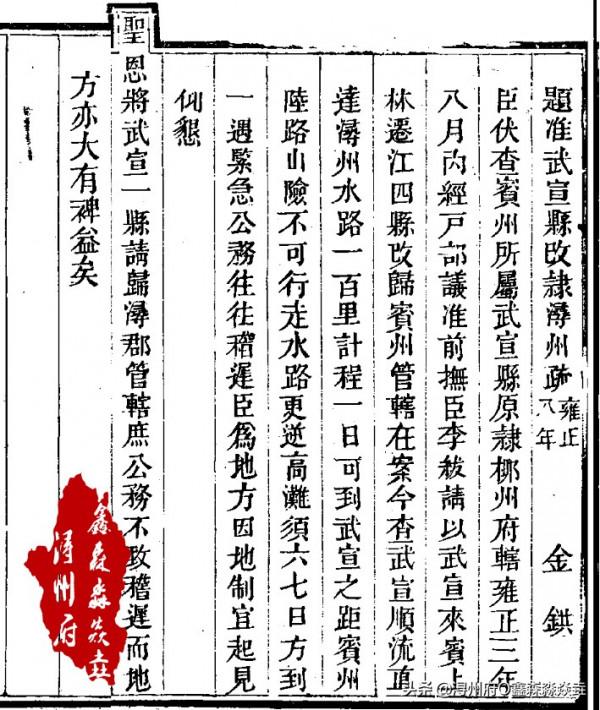 題准武宣縣改隸潯州疏 雍正八年 金鉷
臣伏查賓州所屬武宣縣原隸柳州府轄雍正三年
八月內經戶部議准前撫臣李紱請以武宣來賓上
林遷江四縣改歸賓州管轄在案今查武宣順流直
達潯州水路一百里計程一日可到武宣之距賓州
陸路山險不可行走水路更逆高灘須六七日方到
一遇緊急公務往往稽遲臣爲地方因地制宜起見
仰懇
聖恩將武宣二縣請歸潯郡管轄庶公務不致稽遲而地
方亦大有裨益矣
鑫森淼焱垚
潯州府
头条 @浔州府鑫森淼焱垚